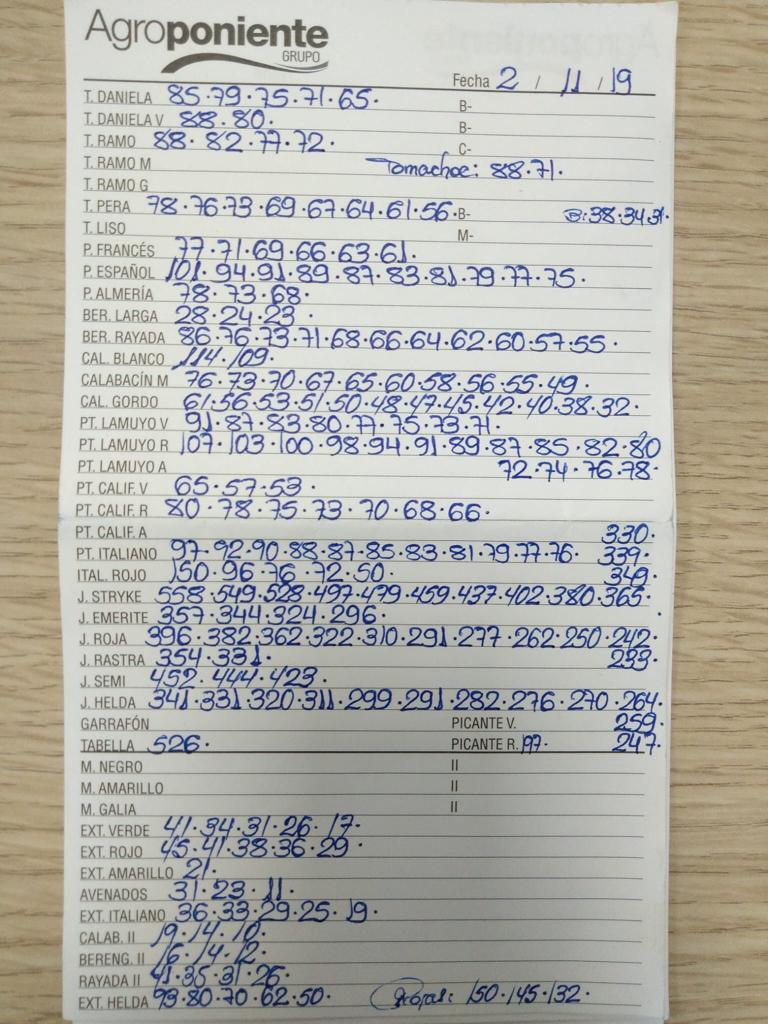 Agroponiente
GRUPO
Fecha 2 / 11 / 19
T. DANELA 85·79·75·71·65· B-
T. DANIELA V 88·80· B-
T. RAMO 88·82·77·72· C-
T. RAMO M Tomachoc: 88·71·
T. RAMO G
T. PERA 78·76·73·69·67·64·61·56· B- B:38·34·31·
T. LISO M-
P. FRANCÉS 77·71·69·66·63·61·
P. ESPAÑOL 101·94·91·89·87·83·81·79·77·75·
P. ALMERÍA 78·73·68·
BER. LARGA 28·24·23·
BER. RAYADA 86·76·73·71·68·66·64·62·60·57·55·
CAL. BLANCO 114·109·
CALABACÍN M 76·73·70·67·65·60·58·56·55·49·
CAL. GORDO 61·56·53·51·50·48·47·45·42·40·38·32·
PT. LAMUYO V 91·87·83·80·77·75·73·71·
PT. LAMUYO R 107·103·100·98·94·91·89·87·85·82·80
PT. LAMUYO A 72·74·76·78·
PT. CALIF. V 65·57·53·
PT. CALIF. R 80·78·75·73·70·68·66·
PT. CALIF. A 330·
PT. ITALIANO 97·92·90·88·87·85·83·81·79·77·76· 339·
ITAL. ROJO 150·96·76·72·50· 349·
J. STRYKE 558·549·528·497·479·459·437·402·380·365·
J. EMERITE 357·344·324·296·
J. ROJA 396·382·362·322·310·291·277·262·250·242·
J. RASTRA 354·331· 233·
J. SEMI 452·444·423·
J. HELDA 341·331·320·311·299·291·282·276·270·264·
GARRAFÓN PICANTE V. 259·
TABELLA 526· PICANTE R. 197· 247·
M. NEGRO II
M. AMARILLO II
M. GALIA II
EXT. VERDE 41·34·31·26·17·
EXT. ROJO 45·41·38·36·29·
EXT. AMARILLO 21·
AVENADOS 31·23·11·
EXT. ITALIANO 36·33·29·25·19·
CALAB. II 19·14·10·
BERENG. II 16·14·12·
RAYADA II 41·35·31·26·
EXT. HELDA 93·80·70·62·50· 150·145·132·